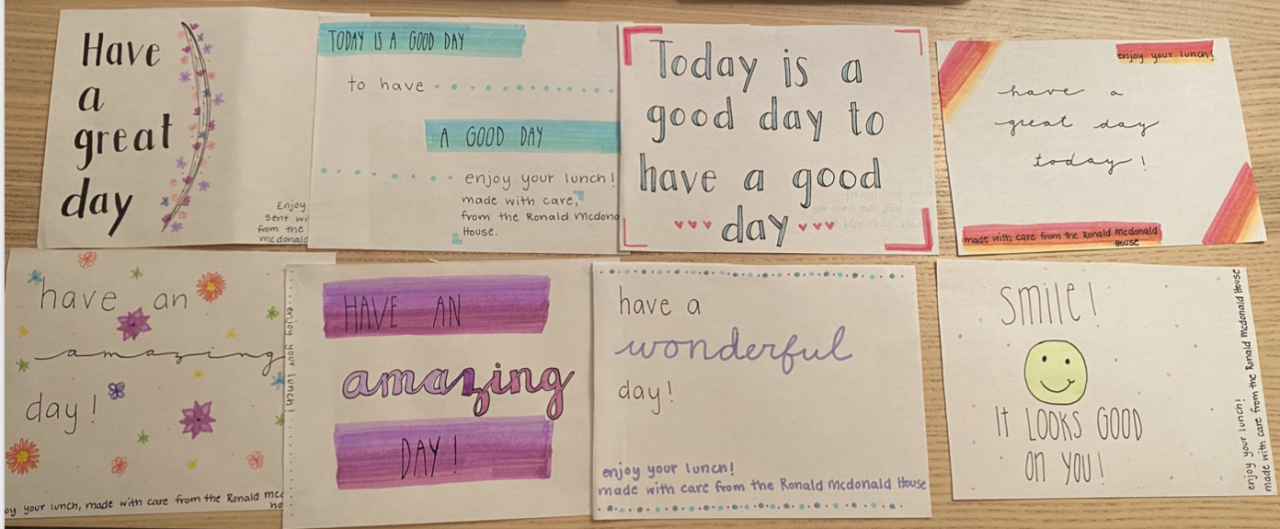 Have
a
great
day
Enjoy
sent
from the
mcdonald
TODAY IS A GOOD DAY
to have
A GOOD DAY
enjoy your lunch!
made with care,
from the Ronald mcdono
House.
Today is a
good day to
have a good
day
enjoy your lunch!
have a
great day
today!
made with care from the Ronald mcdonald
House
have an
amazing
day!
your lunch, made with care from the Ronald
enjoy your lunch!
HAVE AN
amazing
DAY!
have a
wonderful
day!
enjoy your lunch!
made with care from the Ronald mcdonald House
smile!
IT LOOKS GOOD
ON YOU!
enjoy your lunch!
made with care from the Ronald mcdonald House